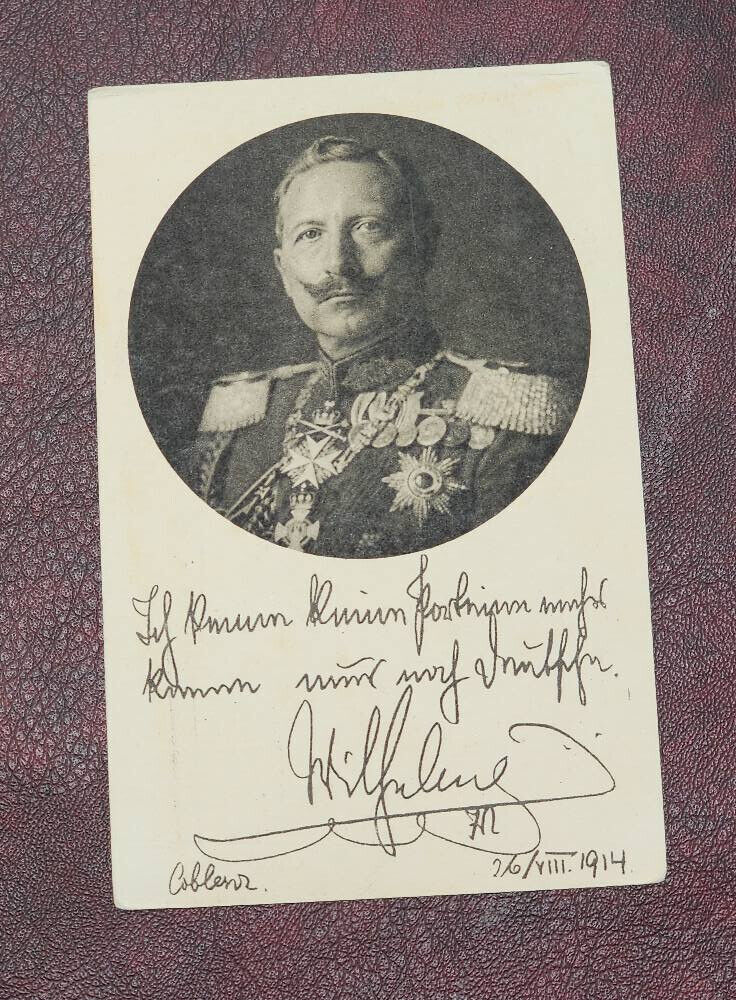 Ich kenne keine Parteien mehr
kenne nur noch Deutsche.
Wilhelm
IR
Coblenz.
26/VIII. 1914.